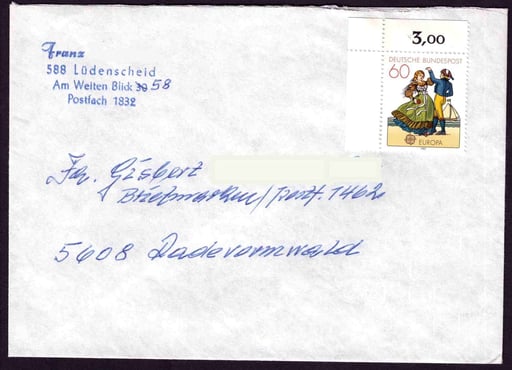 Franz
588 Lüdenscheid
Am Weiten Blick 30 58
Postfach 1832
3,00
DEUTSCHE BUNDESPOST
60
EUROPA
Fa. Gisbert
Briefmarken/Postf. 1462
5608 Radevormwald